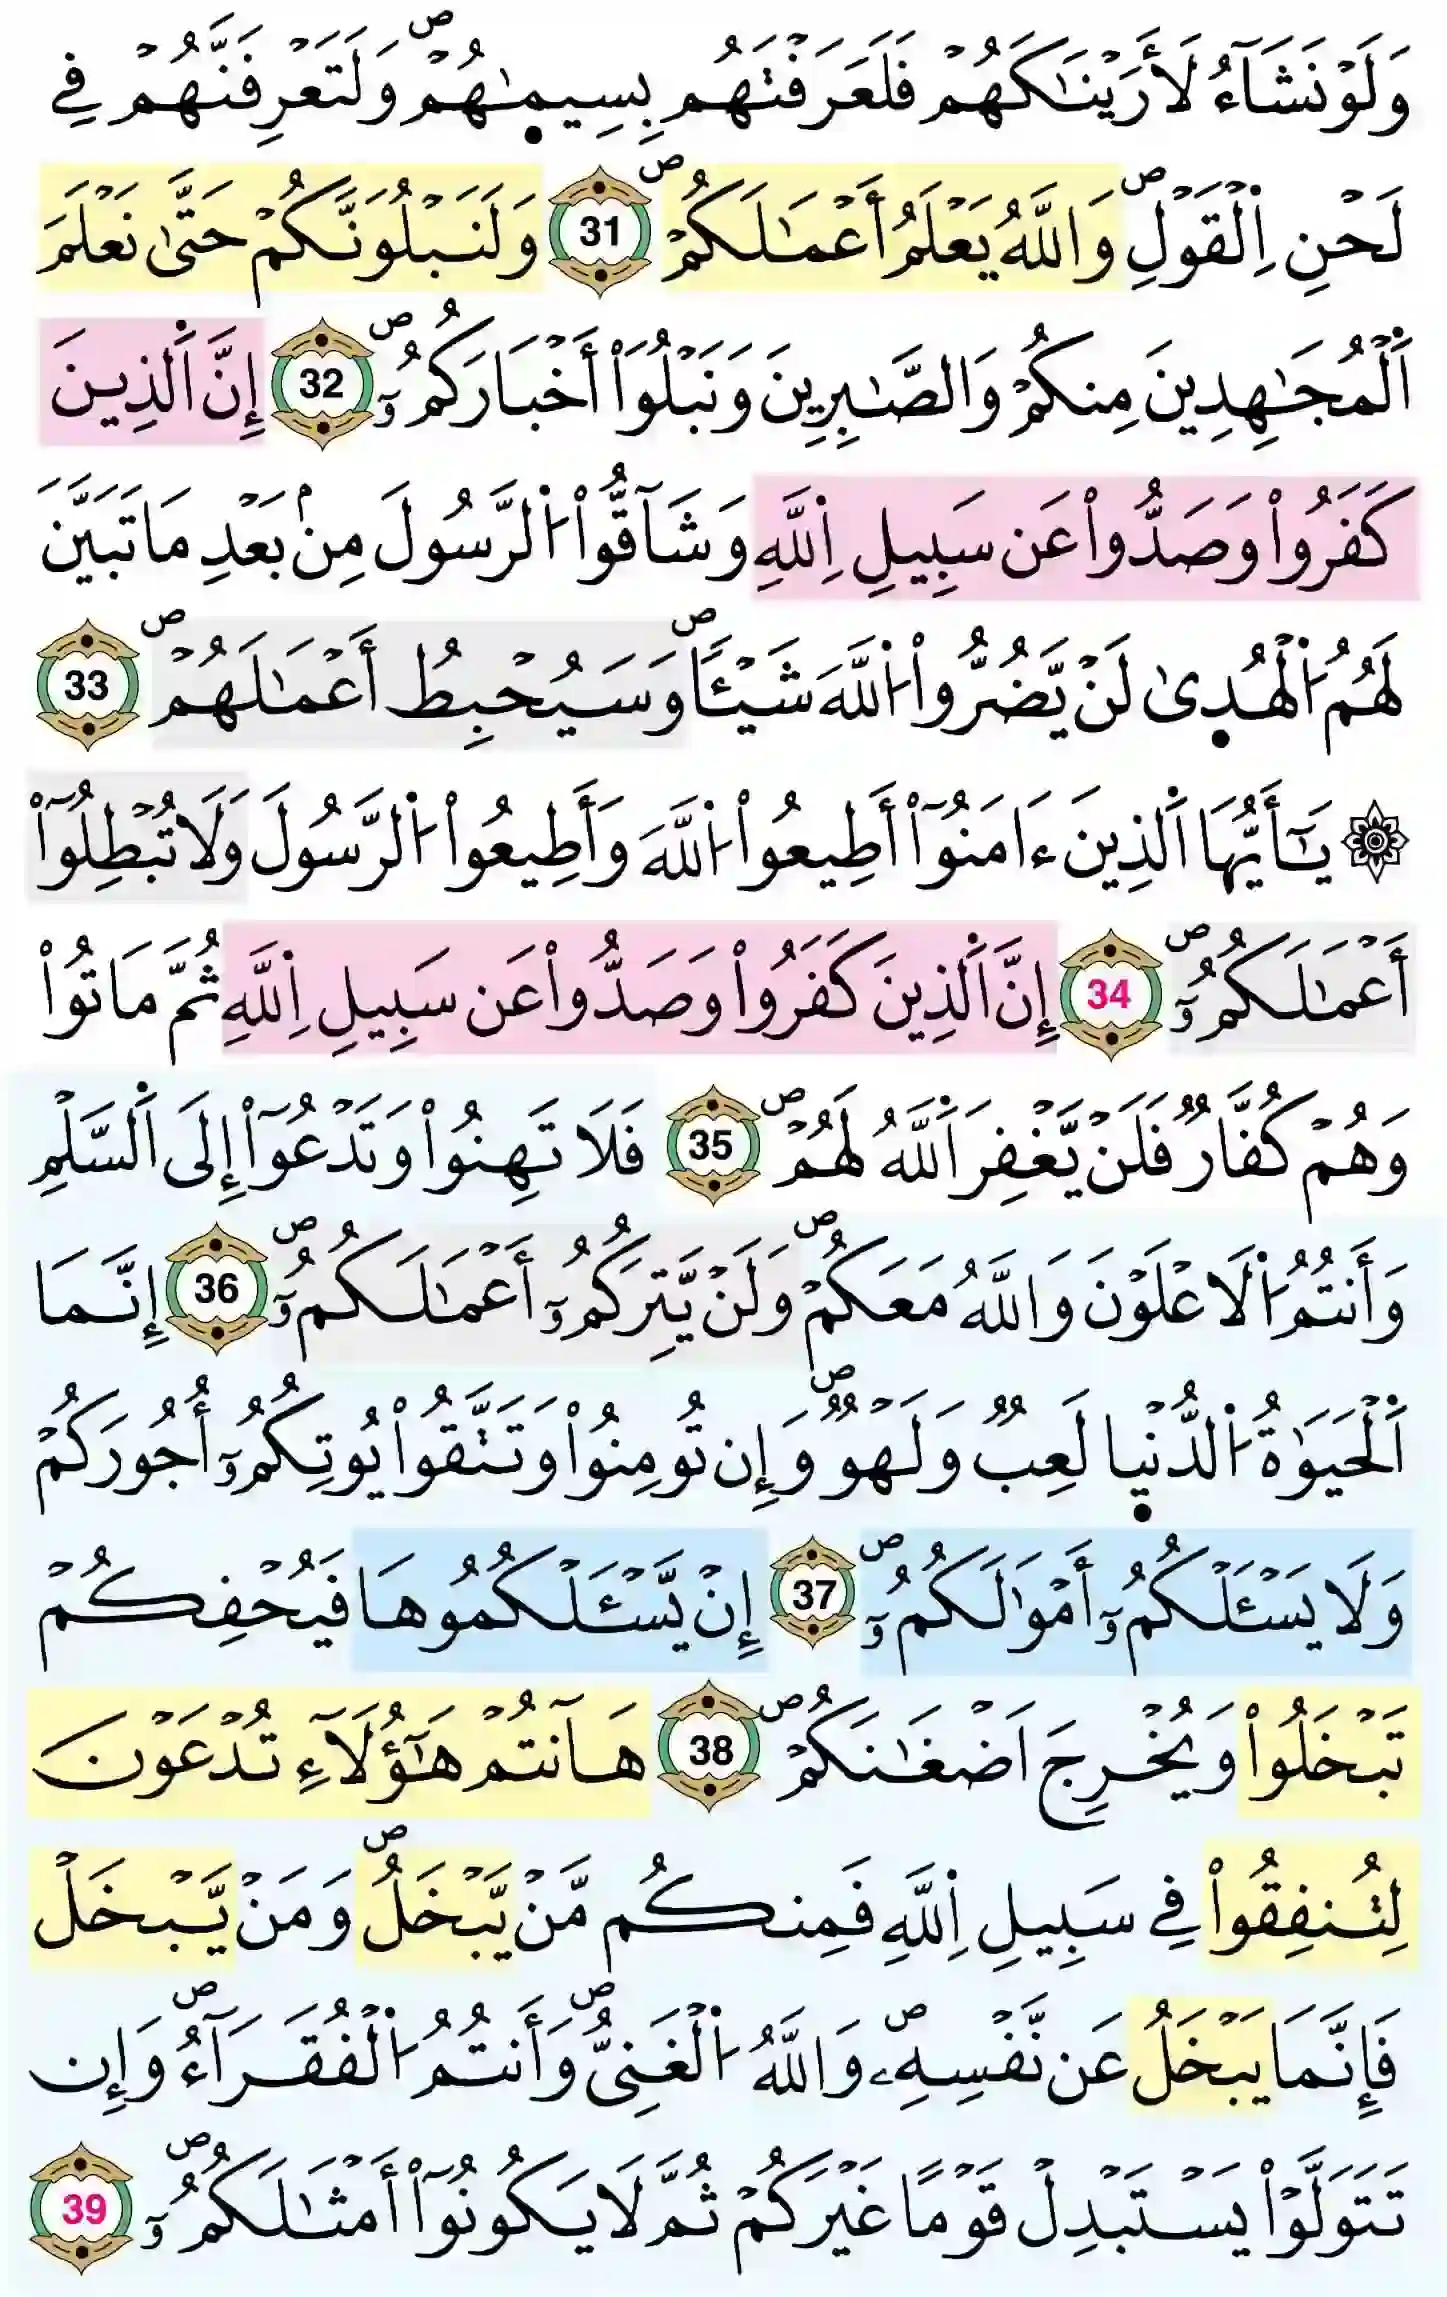 وَلَوْ نَشَآءُ لَأَرَيْنَٰكَهُمْ فَلَعَرَفْتَهُم بِسِيمٰ۪هُمْۖ وَلَتَعْرِفَنَّهُمْ فِے
لَحْنِ اِ۬لْقَوْلِۖ وَاللَّهُ يَعْلَمُ أَعْمَٰلَكُمْۖ 31 وَلَنَبْلُوَنَّكُمْ حَتَّىٰ نَعْلَمَ
اَ۬لْمُجَٰهِدِينَ مِنكُمْ وَالصَّٰبِرِينَ وَنَبْلُوَاْ أَخْبَارَكُمُۥٓۖ 32 إِنَّ اَ۬لذِينَ
كَفَرُواْ وَصَدُّواْ عَن سَبِيلِ اِ۬للَّهِ وَشَآقُّواْ اُ۬لرَّسُولَ مِنۢ بَعْدِ مَا تَبَيَّنَ
لَهُمُ اُ۬لْهُد۪ىٰ لَنْ يَّضُرُّواْ اُ۬للَّهَ شَيْـٔاًۖ وَسَيُحْبِطُ أَعْمَٰلَهُمْۖ 33
۞ يَٰٓأَيُّهَا اَ۬لذِينَ ءَامَنُوٓاْ أَطِيعُواْ اُ۬للَّهَ وَأَطِيعُواْ اُ۬لرَّسُولَ وَلَا تُبْطِلُوٓاْ
أَعْمَٰلَكُمُۥٓۖ 34 إِنَّ اَ۬لذِينَ كَفَرُواْ وَصَدُّواْ عَن سَبِيلِ اِ۬للَّهِ ثُمَّ مَاتُواْ
وَهُمْ كُفَّارٌ فَلَنْ يَّغْفِرَ اَ۬للَّهُ لَهُمْۖ 35 فَلَا تَهِنُواْ وَتَدْعُوٓاْ إِلَى اَ۬لسَّلْمِ
وَأَنتُمُ اُ۬لَاعْلَوْنَ وَاللَّهُ مَعَكُمْۖ وَلَنْ يَّتِرَكُمُۥٓ أَعْمَٰلَكُمُۥٓۖ 36 إِنَّمَا
اَ۬لْحَيَوٰةُ اُ۬لدُّنْي۪ا لَعِبٌ وَلَهْوٌۖ وَإِن تُومِنُواْ وَتَتَّقُواْ يُوتِكُمُۥٓ أُجُورَكُمْ
وَلَا يَسْـَٔلْكُمُۥٓ أَمْوَٰلَكُمُۥٓۖ 37 إِنْ يَّسْـَٔلْكُمُوهَا فَيُحْفِكُمْ
تَبْخَلُواْ وَيُخْرِجَ اَضْغَٰنَكُمْۖ 38 هَآنتُمْ هَٰٓؤُلَآءِ تُدْعَوْنَ
لِتُنفِقُواْ فِے سَبِيلِ اِ۬للَّهِ فَمِنكُم مَّنْ يَّبْخَلُۖ وَمَنْ يَّبْخَلْ
فَإِنَّمَا يَبْخَلُ عَن نَّفْسِهِۦۖ وَاللَّهُ اُ۬لْغَنِىُّۖ وَأَنتُمُ اُ۬لْفُقَرَآءُۖ وَإِن
تَتَوَلَّوْاْ يَسْتَبْدِلْ قَوْماً غَيْرَكُمْ ثُمَّ لَا يَكُونُوٓاْ أَمْثَٰلَكُمُۥٓۖ 39